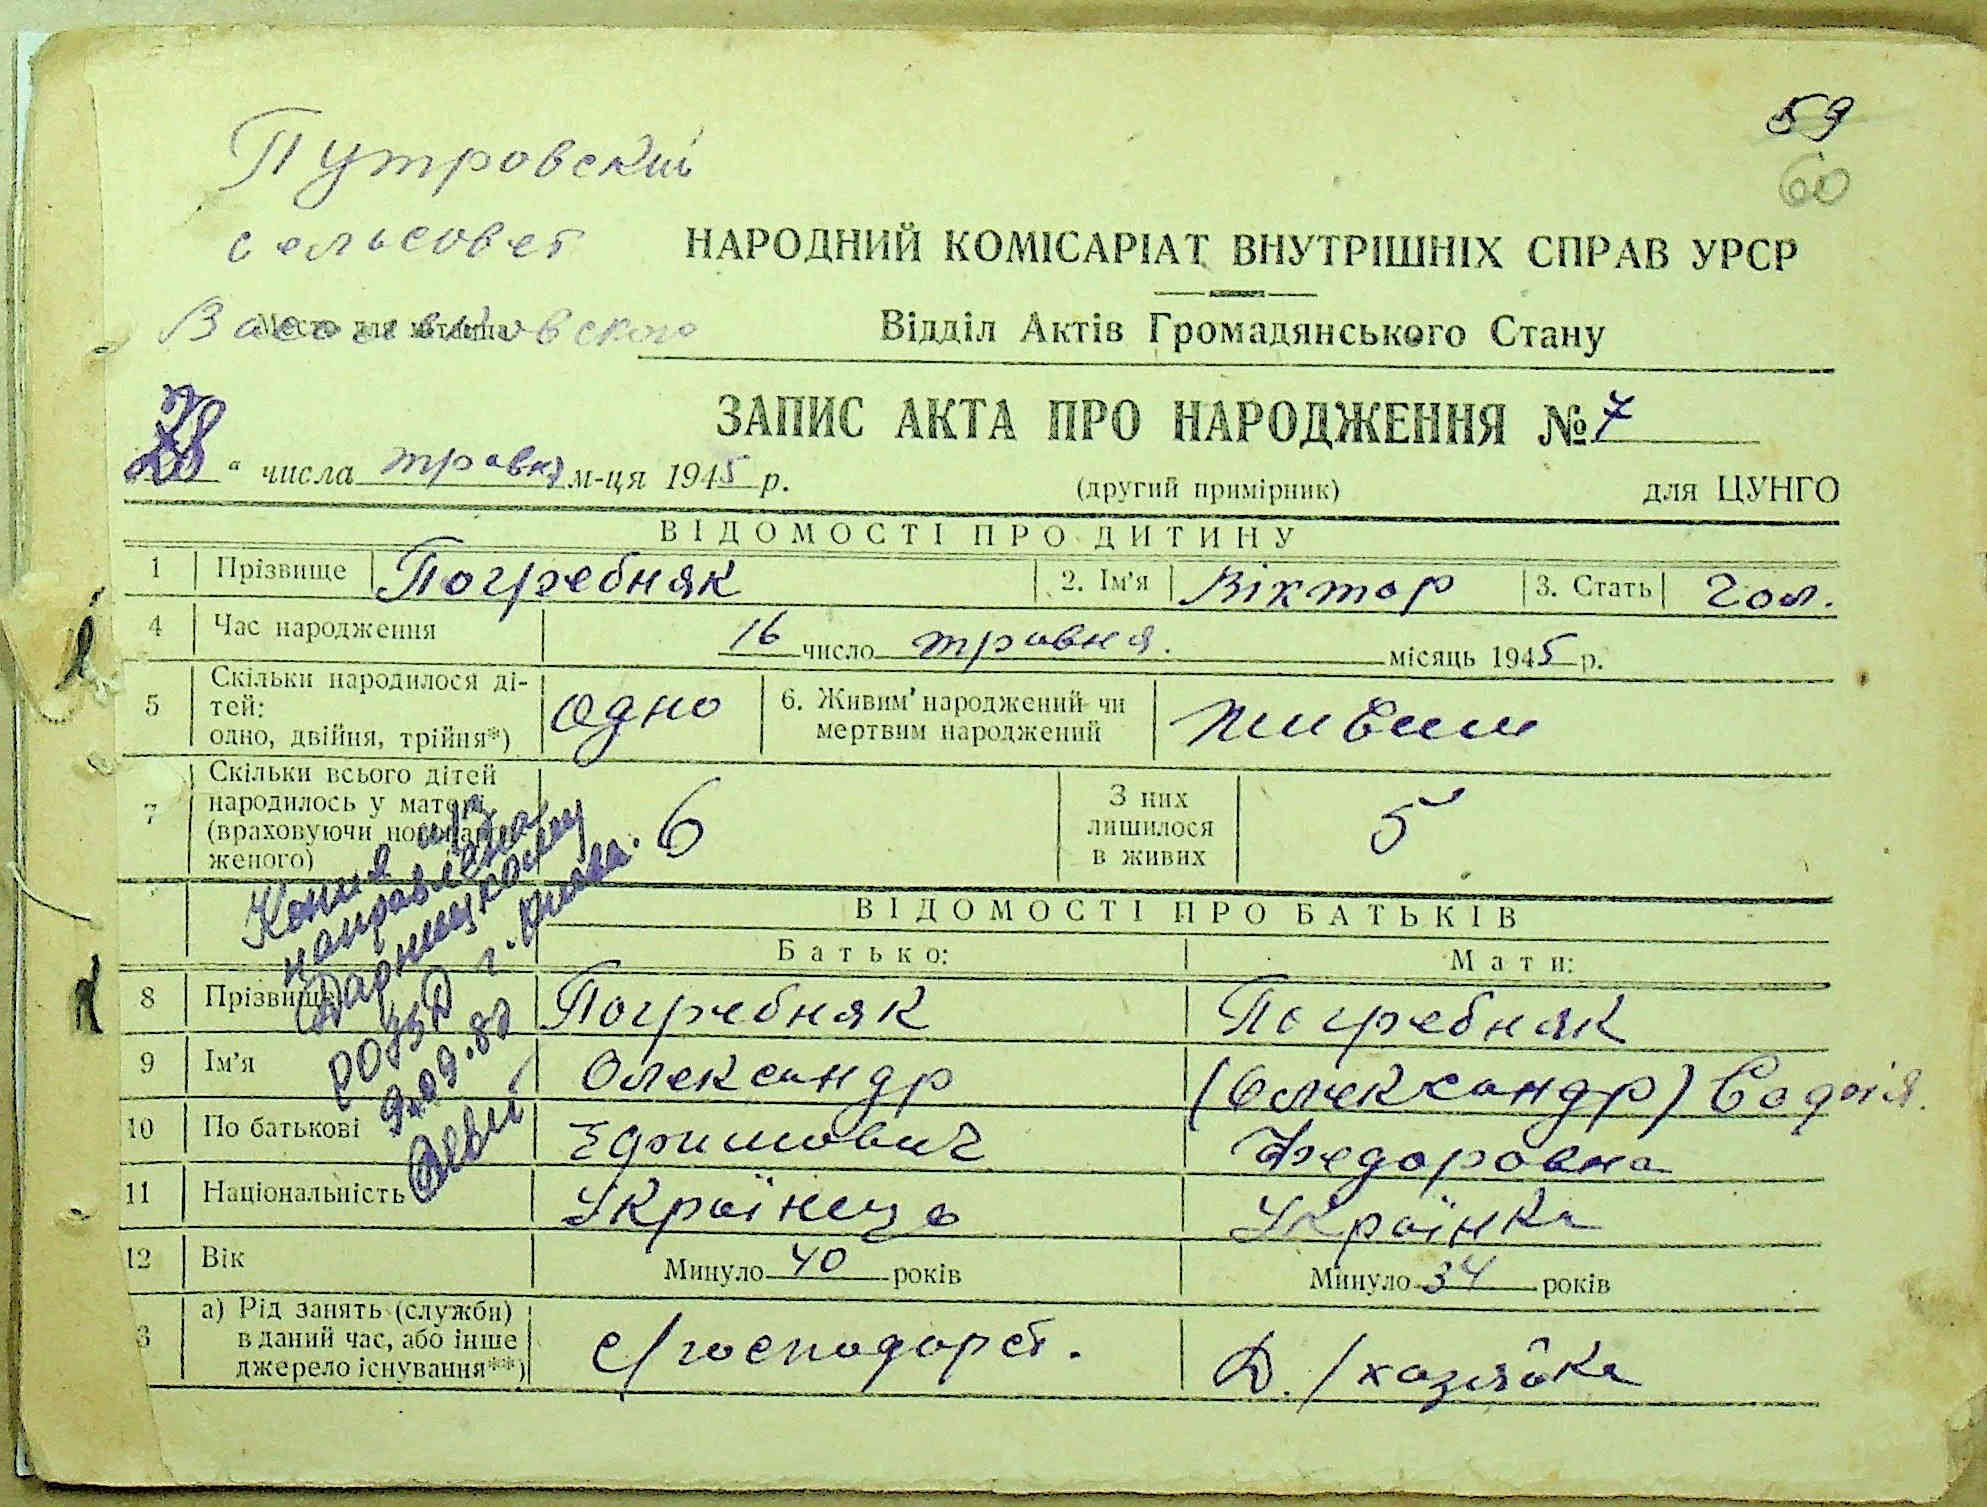 59
60
Путровский
сельсовет
НАРОДНИЙ КОМІСАРІАТ ВНУТРІШНІХ СПРАВ УРСР
Васильковского
Место для штампа
Відділ Актів Громадянського Стану
ЗАПИС АКТА ПРО НАРОДЖЕННЯ № 7
28 " числа травня м-ця 1945 р.
(другий примірник) для ЦУНГО
ВІДОМОСТІ ПРО ДИТИНУ
1 Прізвище Погребняк 2. Ім'я Віктор 3. Стать Чол.
4 Час народження 16 число травня. місяць 1945 р.
5 Скільки народилося ді-
тей:
одно, двійня, трійня*) одно
6. Живим народжений чи
мертвим народжений живим
7 Скільки всього дітей
народилось у матері
(враховуючи новонарод-
женого) 6
З них
лишилося
в живих 5
Копия и/з
направлена
Дарницкому
РОЗАГС г. Киева.
9.09.80
ВІДОМОСТІ ПРО БАТЬКІВ
Батько: Мати:
8 Прізвище Погребняк Погребняк
9 Ім'я Олександр (Олександр) Софія
10 По батькові Єфимович Федоровна
11 Національність Українець Українка
12 Вік Минуло 40 років Минуло 34 років
3 а) Рід занять (служби)
в даний час, або інше
джерело існування**) с/господарст. Д./хазяйка